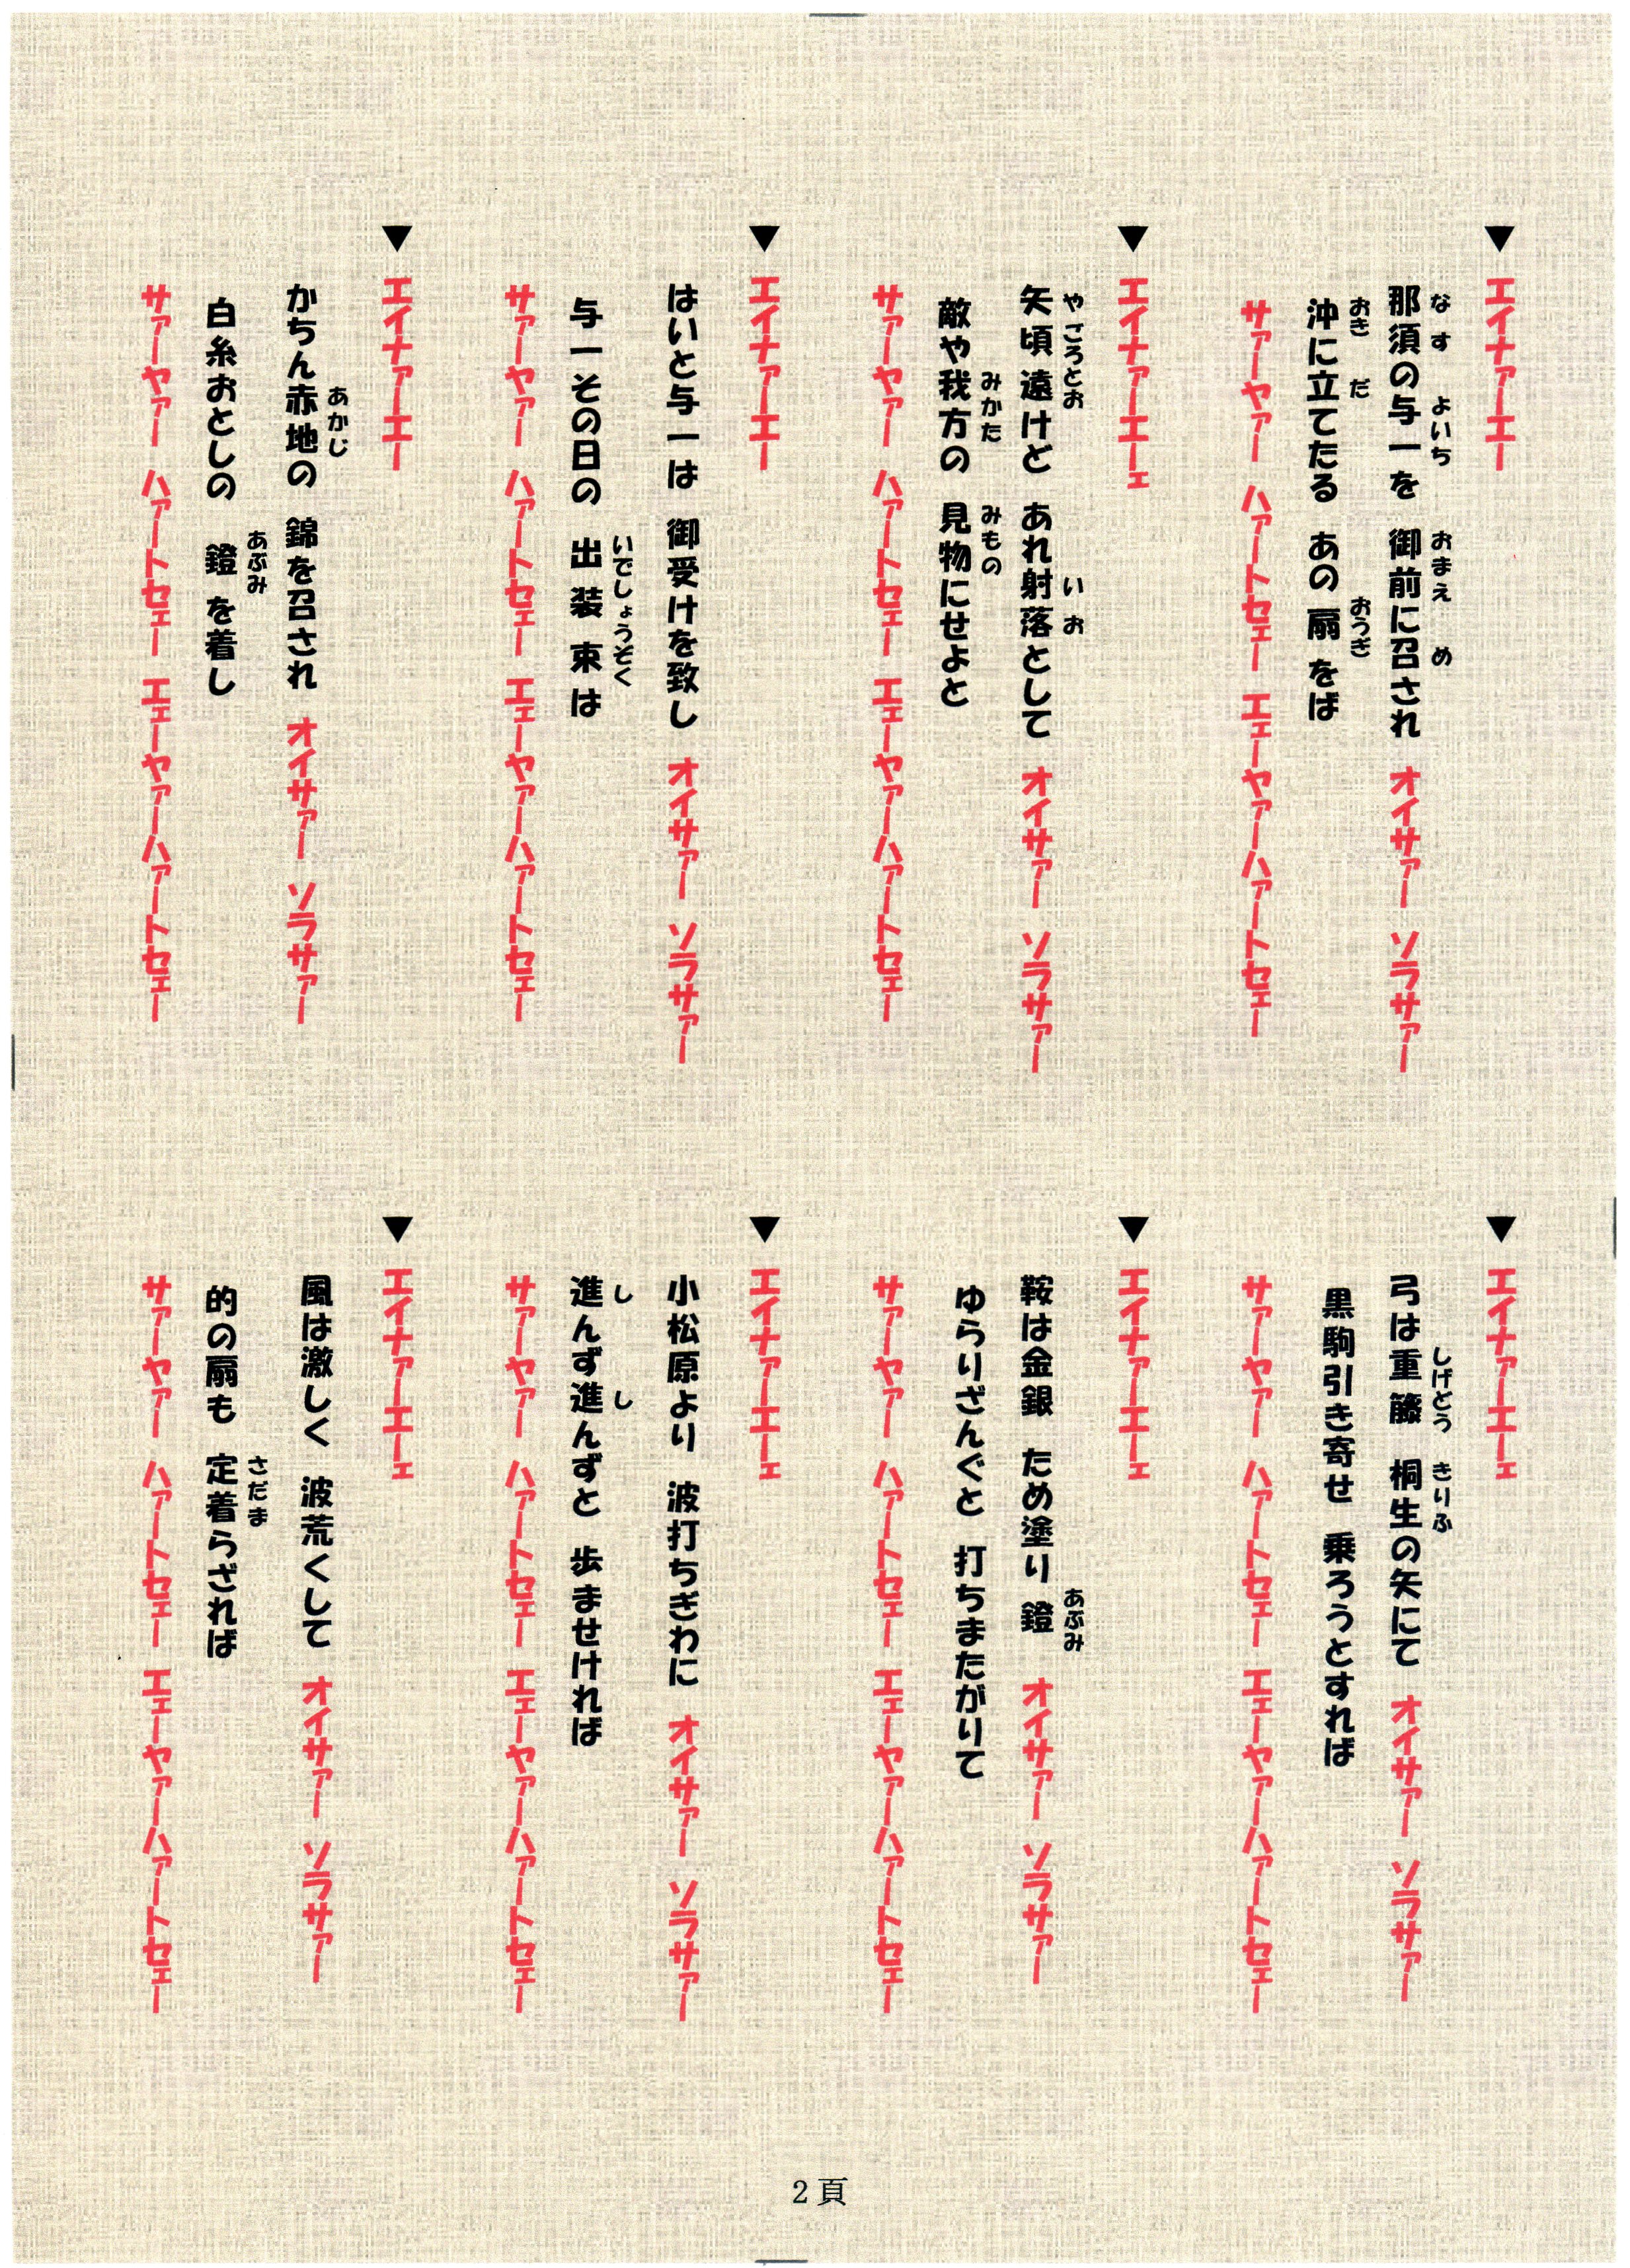 ▼エイナァーエー
那須の与一を 御前に召され オイサァー ソラサァー
なす よいち おまえ め
沖に立てたる あの扇をば
おき だ おうぎ
サァーヤァー ハァートセェー エェーヤァーハァートセェー
▼エイナァーエーェ
矢頃遠けど あれ射落として オイサァー ソラサァー
やごろとお い お
敵や我方の 見物にせよと
みかた みもの
サァーヤァー ハァートセェー エェーヤァーハァートセェー
▼エイナァーエー
はいと与一は 御受けを致し オイサァー ソラサァー
与一その日の 出装束は
いでしょうぞく
サァーヤァー ハァートセェー エェーヤァーハァートセェー
▼エイナァーエー
かちん赤地の 錦を召され オイサァー ソラサァー
あかじ
白糸おとしの 鐙を着し
あぶみ
サァーヤァー ハァートセェー エェーヤァーハァートセェー
▼エイナァーエーェ
弓は重籐 桐生の矢にて オイサァー ソラサァー
しげどう きりふ
黒駒引き寄せ 乗ろうとすれば
サァーヤァー ハァートセェー エェーヤァーハァートセェー
▼エイナァーエーェ
鞍は金銀 ため塗り鐙 オイサァー ソラサァー
あぶみ
ゆらりざんぐと 打ちまたがりて
サァーヤァー ハァートセェー エェーヤァーハァートセェー
▼エイナァーエーェ
小松原より 波打ちぎわに オイサァー ソラサァー
進んず進んずと 歩ませければ
し し
サァーヤァー ハァートセェー エェーヤァーハァートセェー
▼エイナァーエーェ
風は激しく 波荒くして オイサァー ソラサァー
的の扇も 定着らざれば
さだま
サァーヤァー ハァートセェー エェーヤァーハァートセェー
2頁